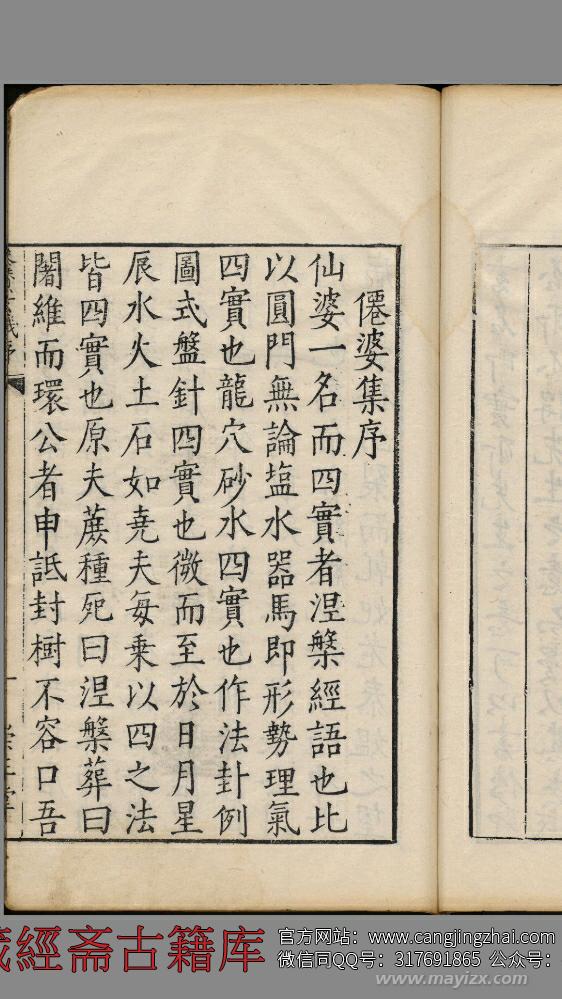 僊婆集序
仙婆一名而四實者涅槃經語也比
以圓門無論塩水器馬即形勢理氣
四實也龍穴砂水四實也作法卦例
圖式盤針四實也微而至於日月星
辰水火土石如堯夫每乗以四之法
皆四實也原夫蕨種死曰涅槃葬曰
闍維而環公者申詆封樹不容口吾
藏經斋古籍库
官方网站：www.cangjingzhai.com
微信同QQ号：317691865 公众号：
www.mayizx.com